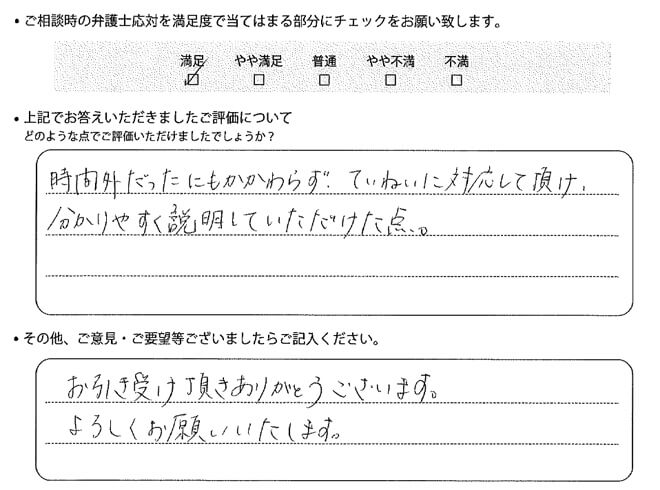 ・ご相談時の弁護士応対を満足度で当てはまる部分にチェックをお願い致します。
満足 やや満足 普通 やや不満 不満
☑ □ □ □ □
・上記でお答えいただきましたご評価について
どのような点でご評価いただけましたでしょうか？
時間外だったにもかかわらず、ていねいに対応して頂け、
分かりやすく説明していただけた点。
・その他、ご意見・ご要望等ございましたらご記入ください。
お引き受け頂きありがとうございます。
よろしくお願いいたします。